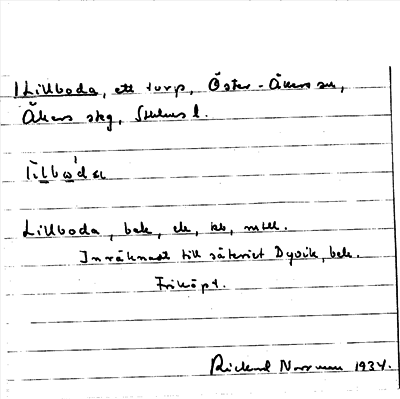 Lillboda, ett torp, Öster-Åkers sn,
Åkers skg, Sthlms l.
Lillboda, bek, ek, kb, mtll.
Inräknast till säteriet Dyvik, bek.
Friköpt.
Rickard Norrman 1934.